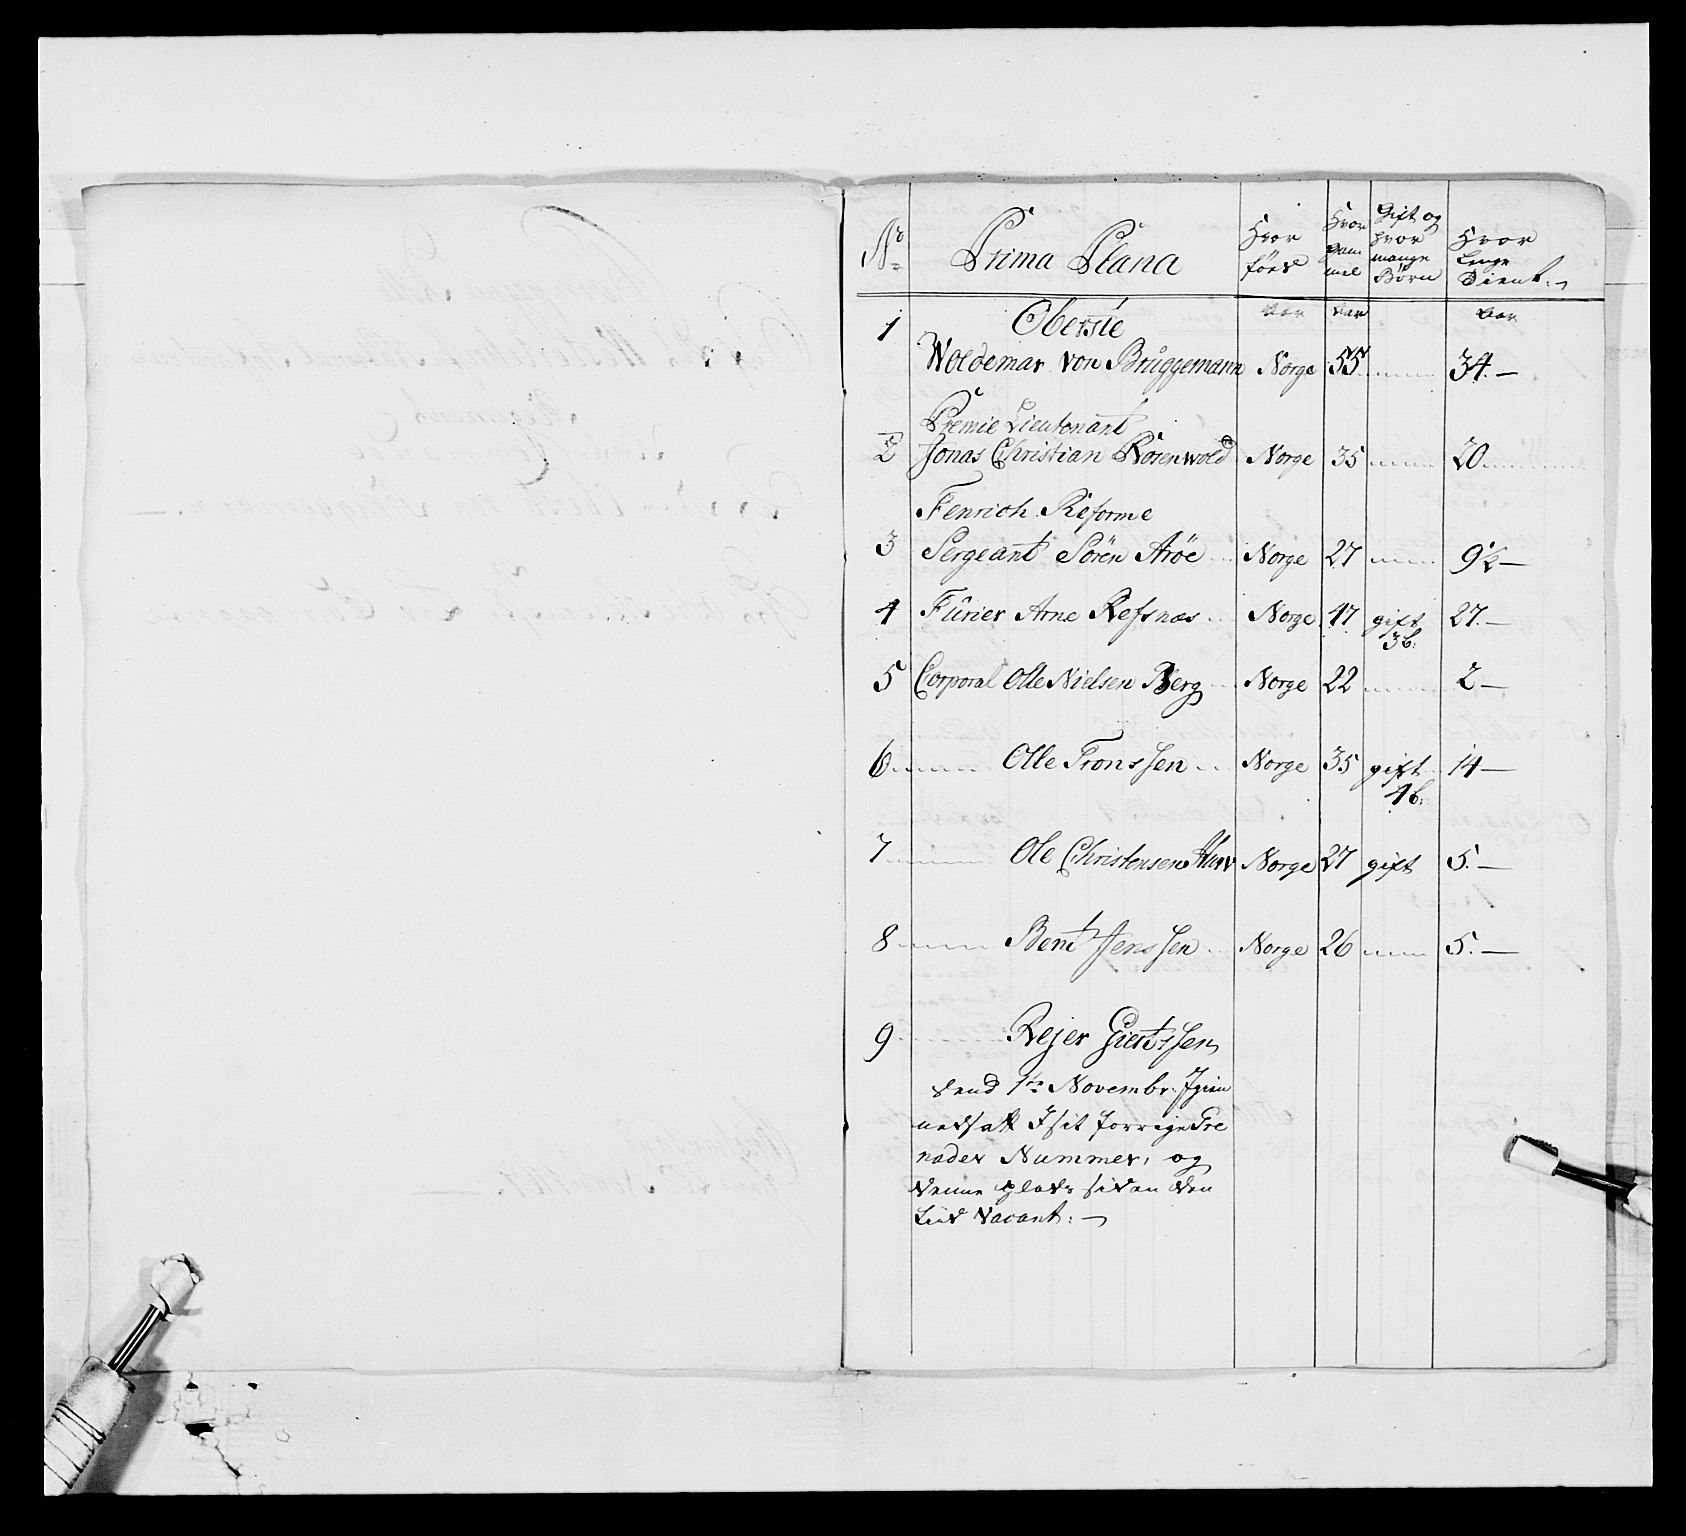 No Prima Plana Hvor föed Hvor gam mel Gift og hvor mange Börn Hvor Lenge Dient.
Aar Aar Aar
1 Oberste
Woldemar von Brüggemann Norge 55 34.
Premie Lieutenant
2 Jonas Christian Rosenwold Norge 35 20
Fenrich Reforme
3 Sergeant Sören Aröe Norge 27 9½
4 Fürier Arne Refsnæs Norge 47 gift 27.
3 b:
5 Corporal Olle Nielsen Berg Norge 22 2
6 Olle Tronssen Norge 35 gift 14
4 b:
7 Ole Christensen Norge 27 gift 5.
8 Bent Jenssen Norge 26 5.
9 Rejer Giertssen
dend 1te Novembr. Igien
nedsatt I sit forrige Gre
nader Nummer, og
denne plads siden den
tiid Vacant: